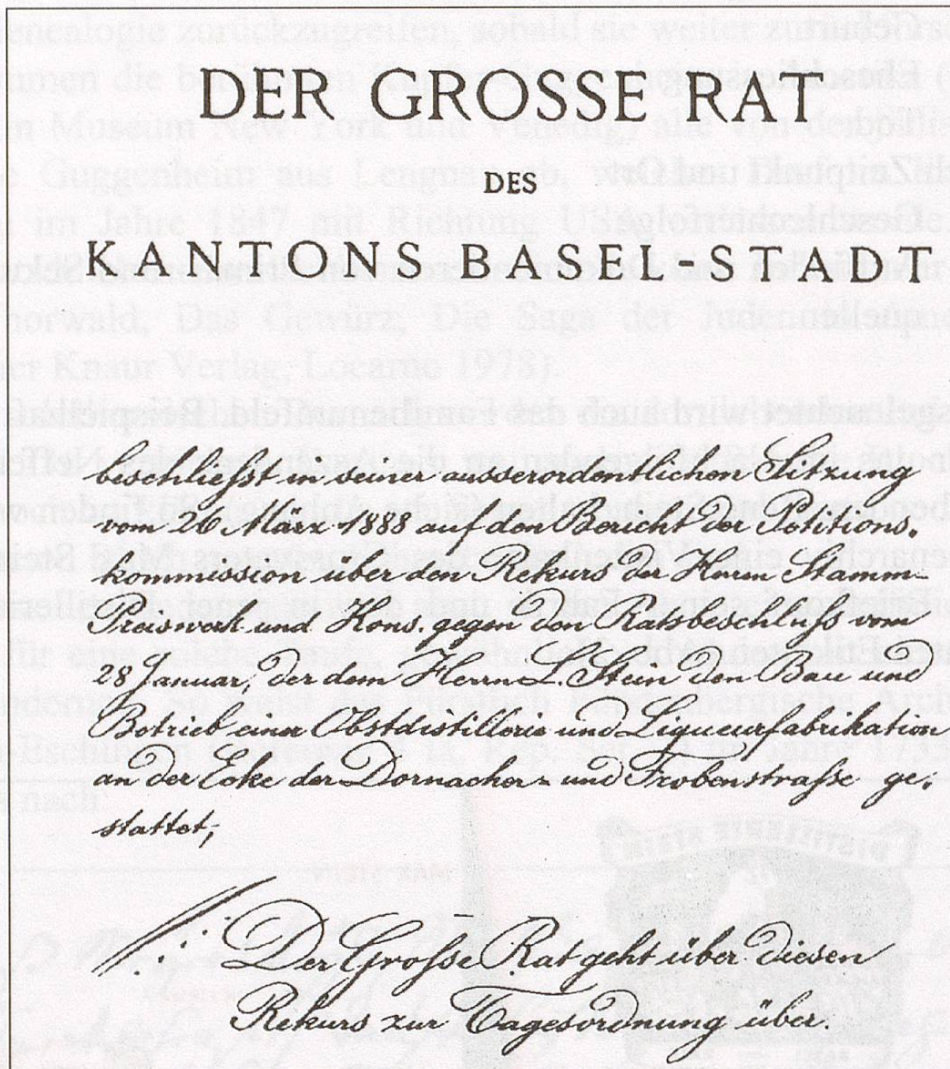 DER GROSSE RAT
DES
KANTONS BASEL-STADT
beschließt in seiner ausserordentlichen Sitzung
vom 26. März 1888 auf den Bericht der Petitions-
kommission über den Rekurs der Herrn Stamm-
Preiswerk und Kons. gegen den Ratsbeschluß vom
28 Januar, der dem Herrn L. Stein den Bau und
Betrieb einer Obstdistillerie und Liqueurfabrikation
an der Ecke der Dornacher- und Frobenstraße ge-
stattet,
Der Große Rat geht über diesen
Rekurs zur Tagesordnung über.